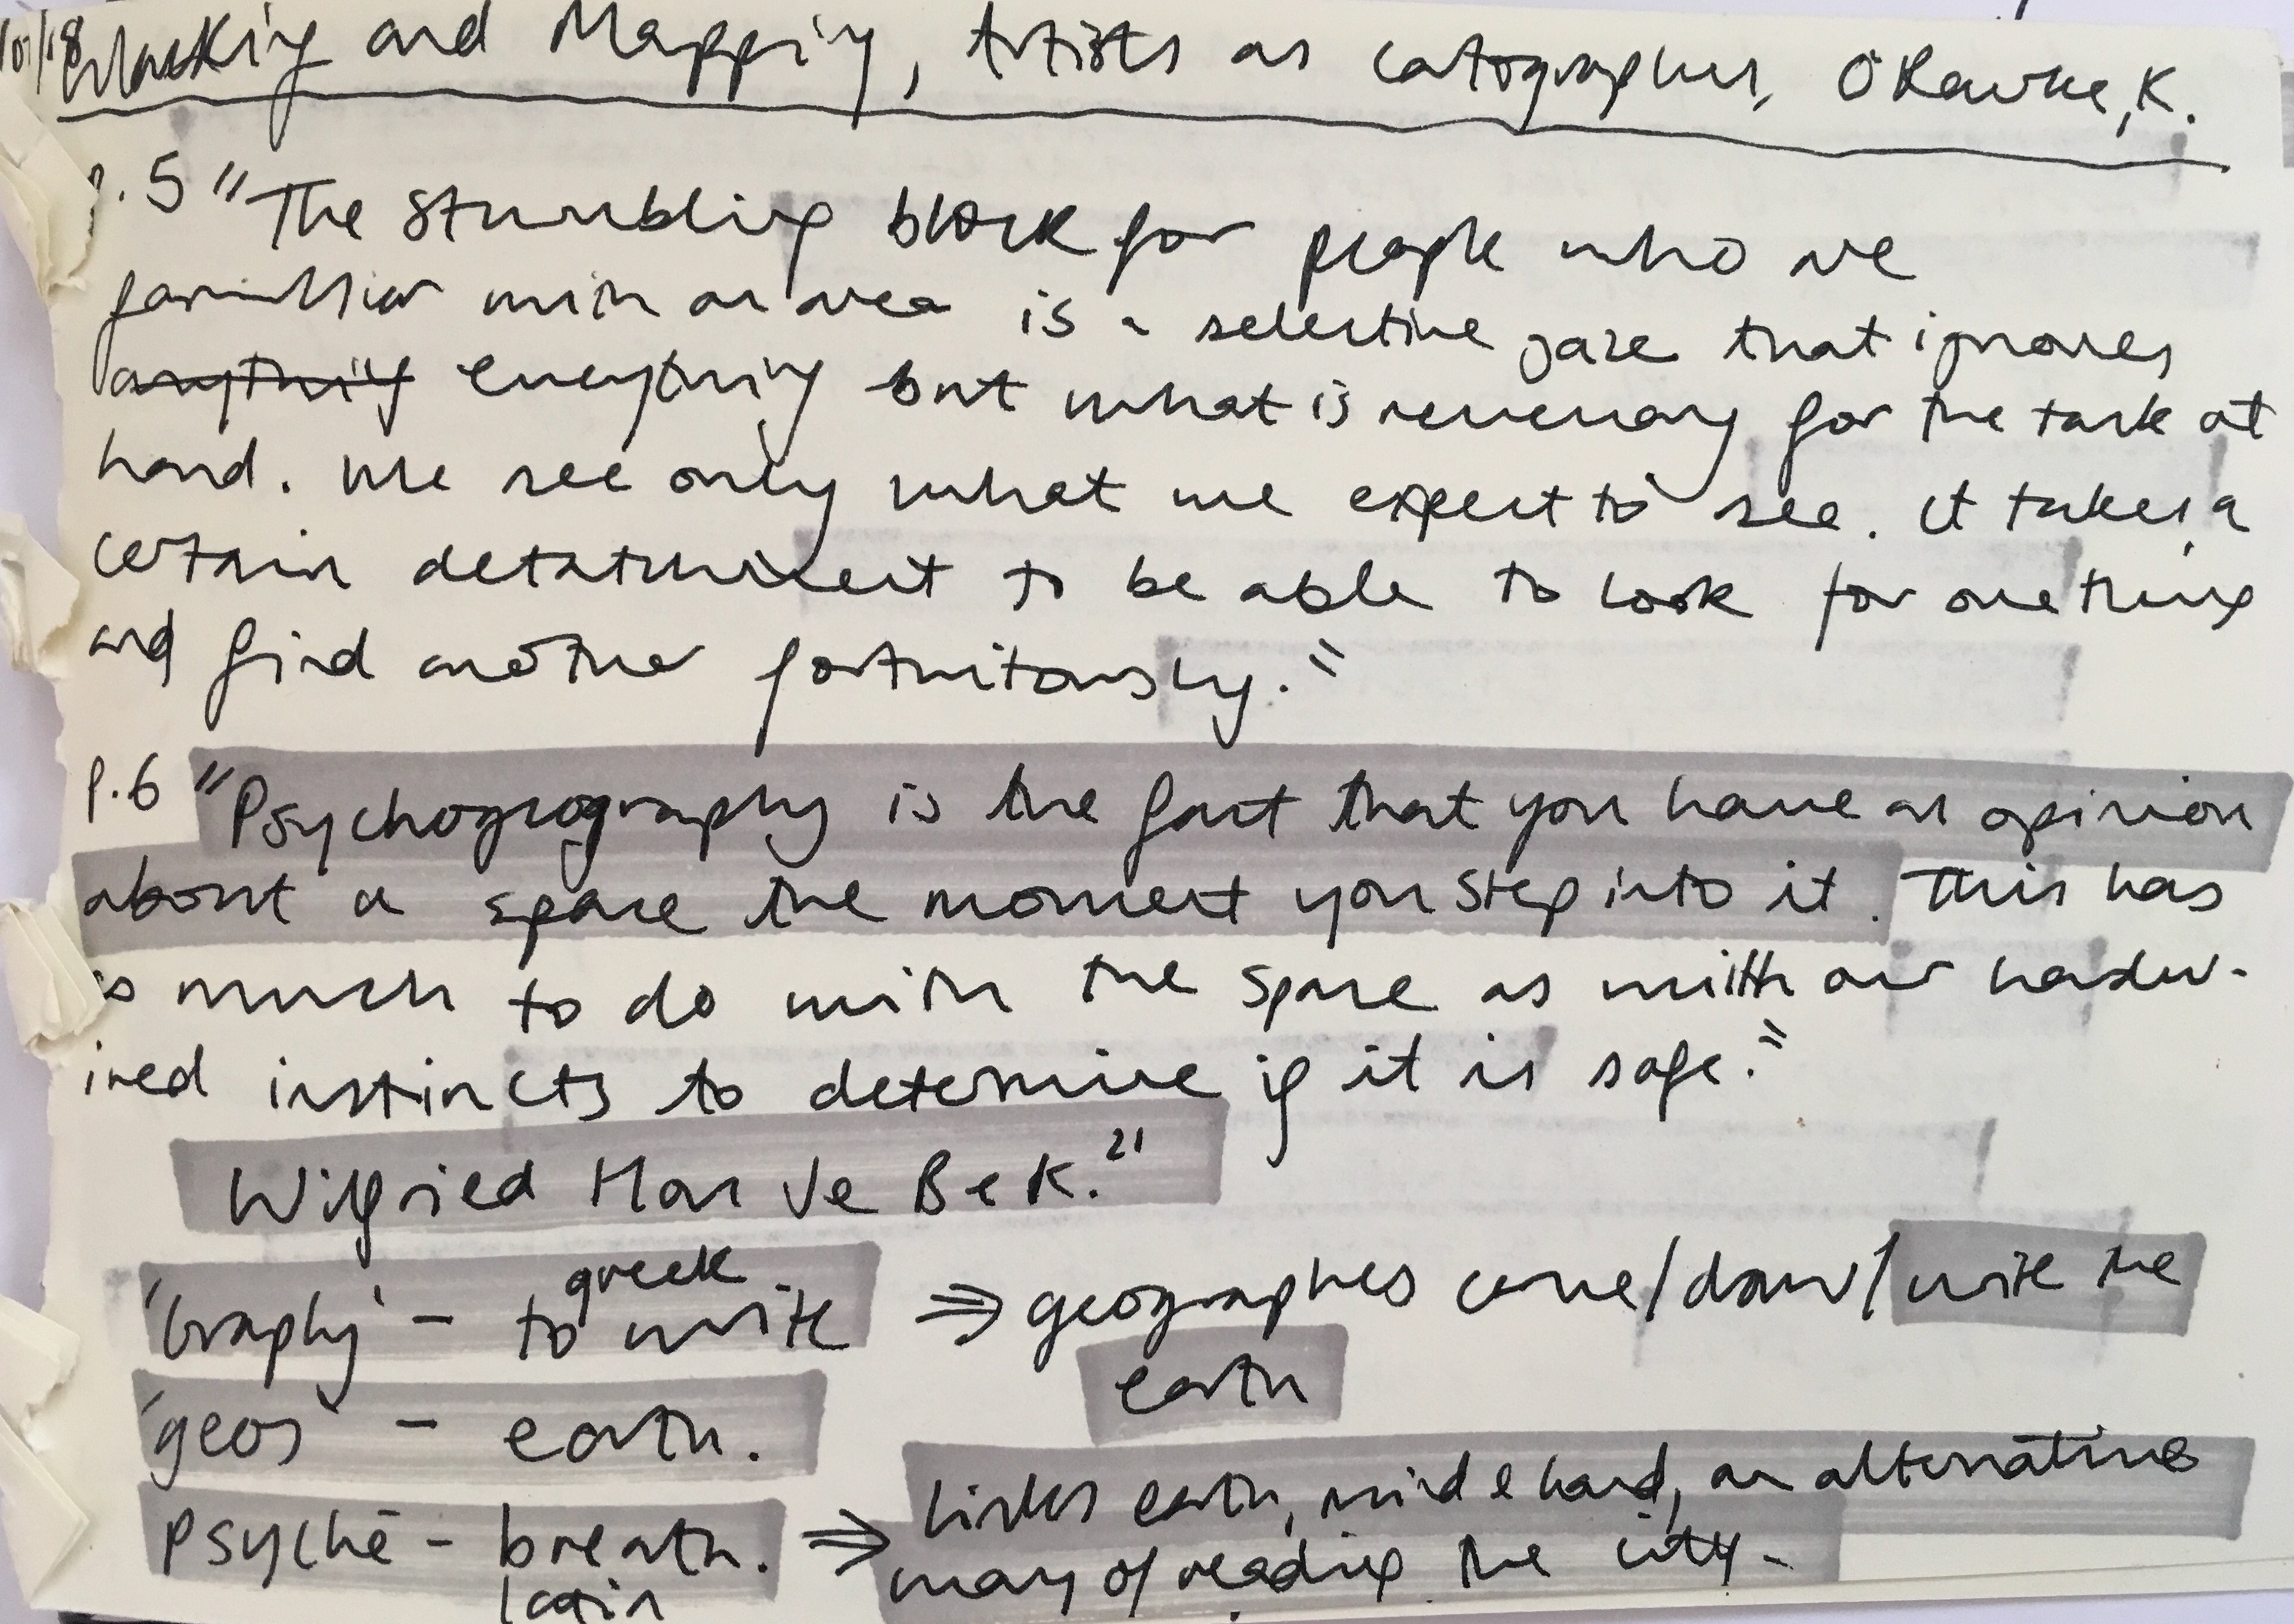 Walking and Mapping, Artists as Catographers, O'Rourke, K.
p.5 "The stumbling block for people who are
familiar with an area is a selective gaze that ignores
anything everything but what is necessary for the task at
hand. We see only what we expect to see. It takes a
certain detatchment to be able to look for one thing
and find another fortuitously."
p.6 "Psychogeography is the fact that you have an opinion
about a space the moment you step into it. This has
as much to do with the space as with our hardw-
ired instincts to determine if it is safe."
Wilfried Hou Je Bek."
greek
'Graphy' - to write ⇒ geographers carve/draw/write the
earth
'geos' - earth.
Psychē - breath. ⇒ Links earth, mind & hand, an alternative
way of reading the city.
latin